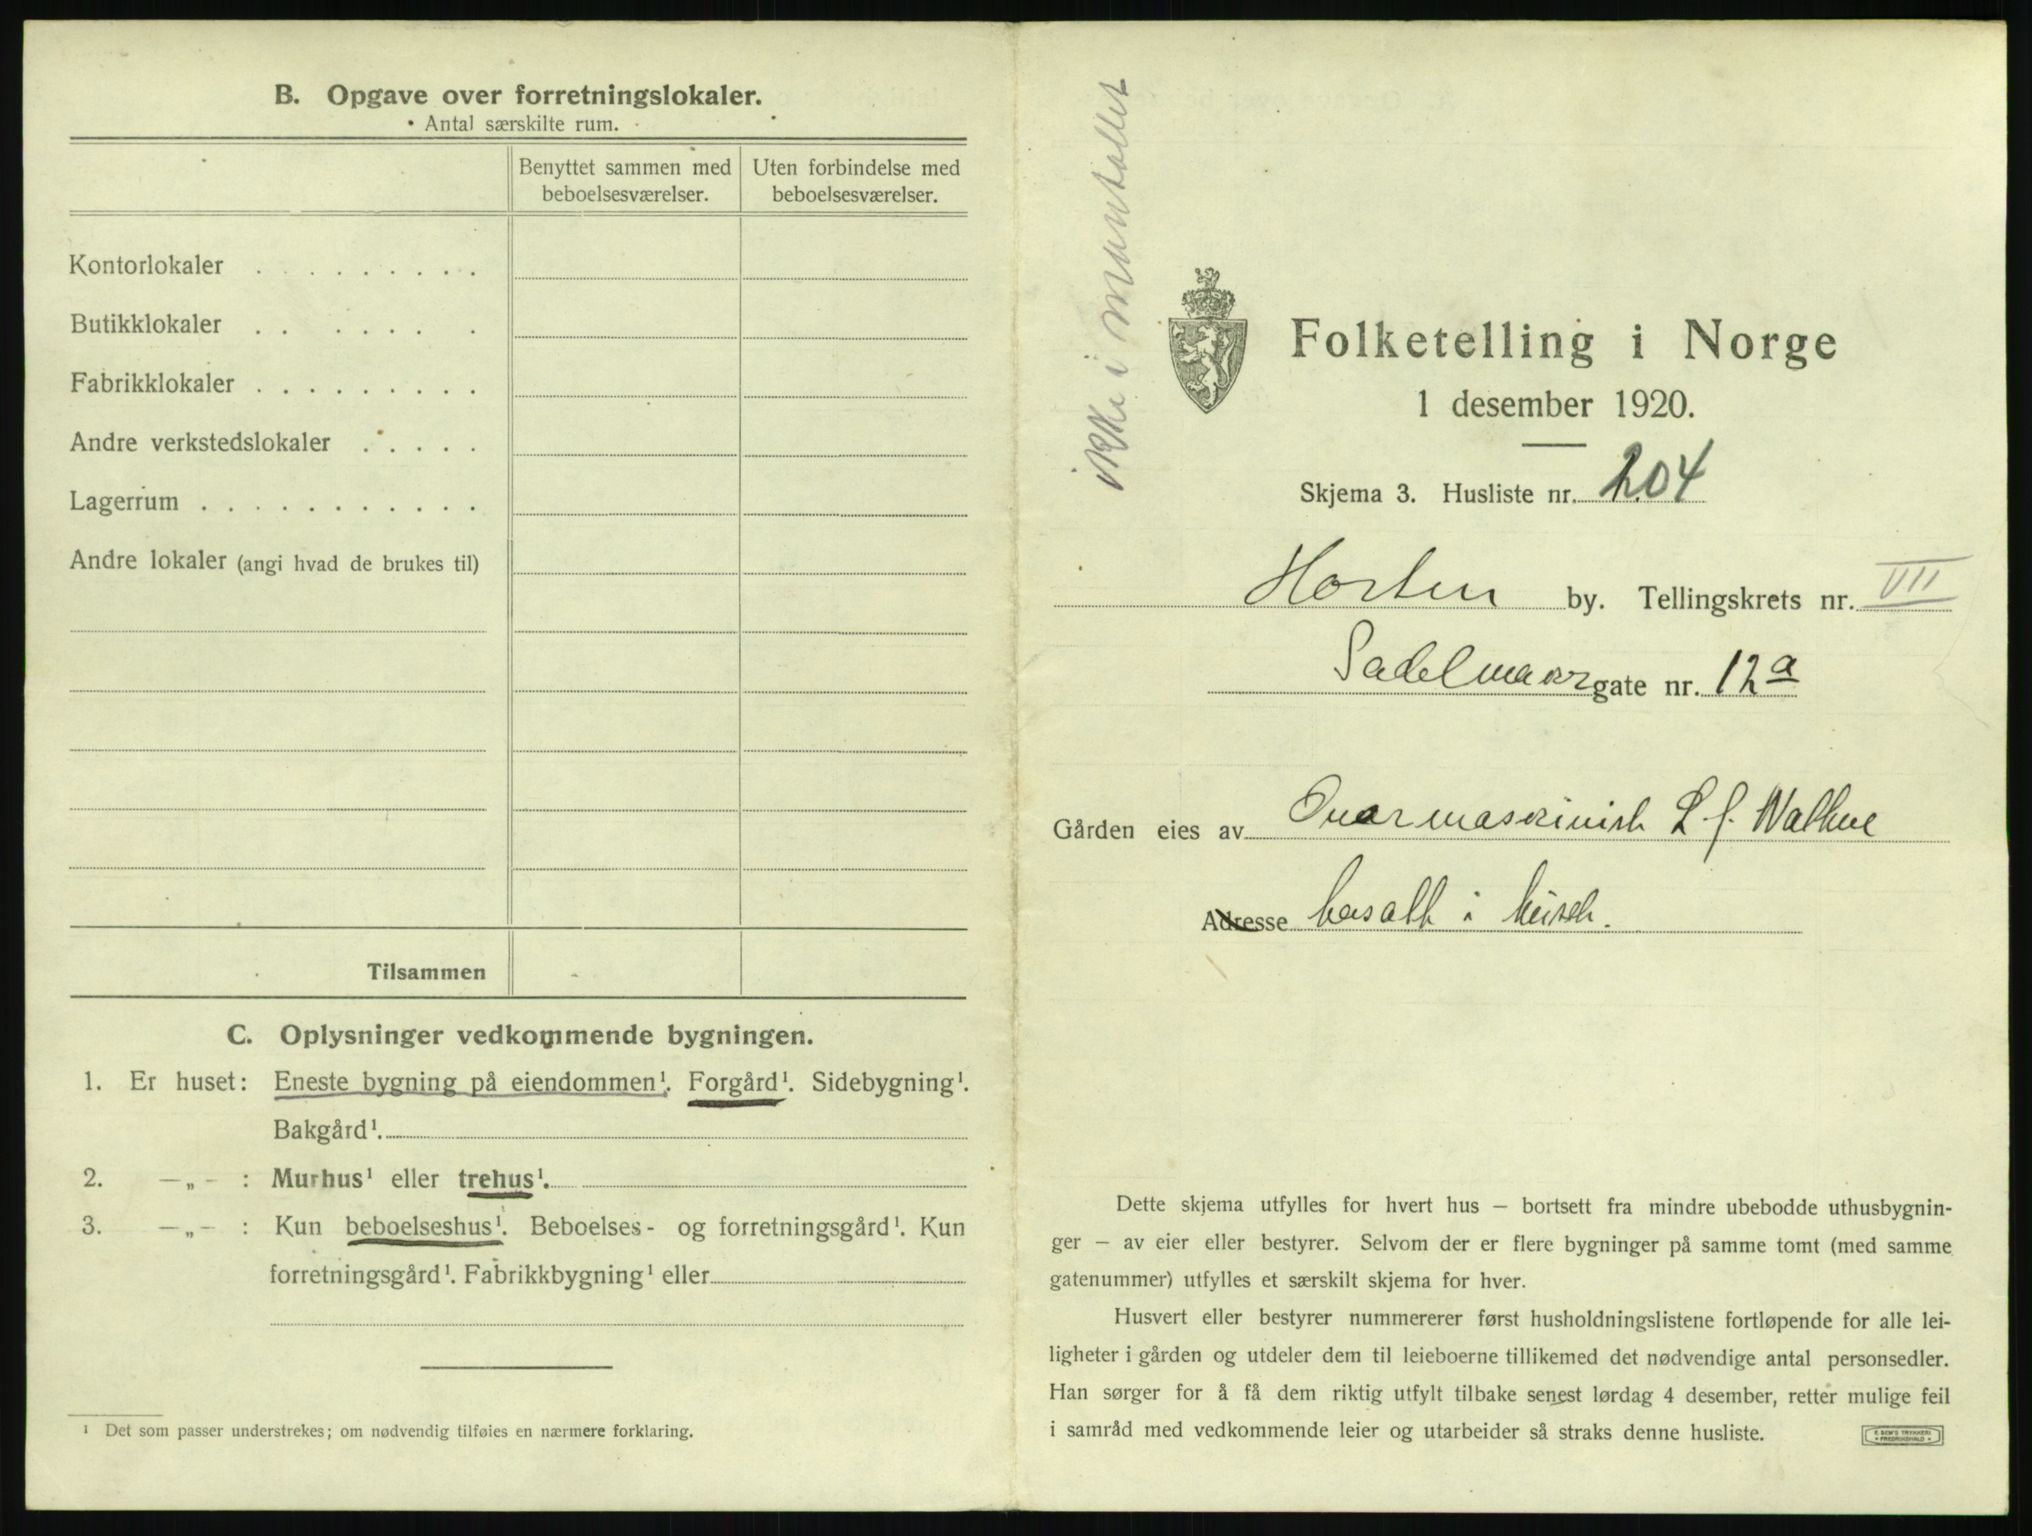 B. Opgave over forretningslokaler.
Antal særskilte rum.
Benyttet sammen med beboelsesværelser.
Uten forbindelse med beboelsesværelser.
Kontorlokaler . . . . . . . . .
Butikklokaler . . . . . . .
Fabrikklokaler . . . . . . . . .
Andre verkstedslokaler . . . . .
Lagerrum . . . . . . . . . . .
Andre lokaler (angi hvad de brukes til)
Tilsammen
C. Oplysninger vedkommende bygningen.
1. Er huset: Eneste bygning på eiendommen¹. Forgård¹. Sidebygning¹.
Bakgård¹.
2. —„— : Murhus¹ eller trehus¹.
3. —„— : Kun beboelseshus¹. Beboelses- og forretningsgård¹. Kun
forretningsgård¹. Fabrikkbygning¹ eller
¹ Det som passer understrekes; om nødvendig tilføies en nærmere forklaring.
ikke i mantallet
Folketelling i Norge
1 desember 1920.
Skjema 3. Husliste nr. 204
Horten by. Tellingskrets nr. VII
gate nr. 12a
Gården eies av L. J. Wathne
Adresse
Dette skjema utfylles for hvert hus — bortsett fra mindre ubebodde uthusbygnin-
ger — av eier eller bestyrer. Selvom der er flere bygninger på samme tomt (med samme
gatenummer) utfylles et særskilt skjema for hver.
Husvert eller bestyrer nummererer først husholdningslistene fortløpende for alle lei-
ligheter i gården og utdeler dem til leieboerne tillikemed det nødvendige antal personsedler.
Han sørger for å få dem riktig utfylt tilbake senest lørdag 4 desember, retter mulige feil
i samråd med vedkommende leier og utarbeider så straks denne husliste.
E. SEM'S TRYKKERI
FREDRIKSHALD